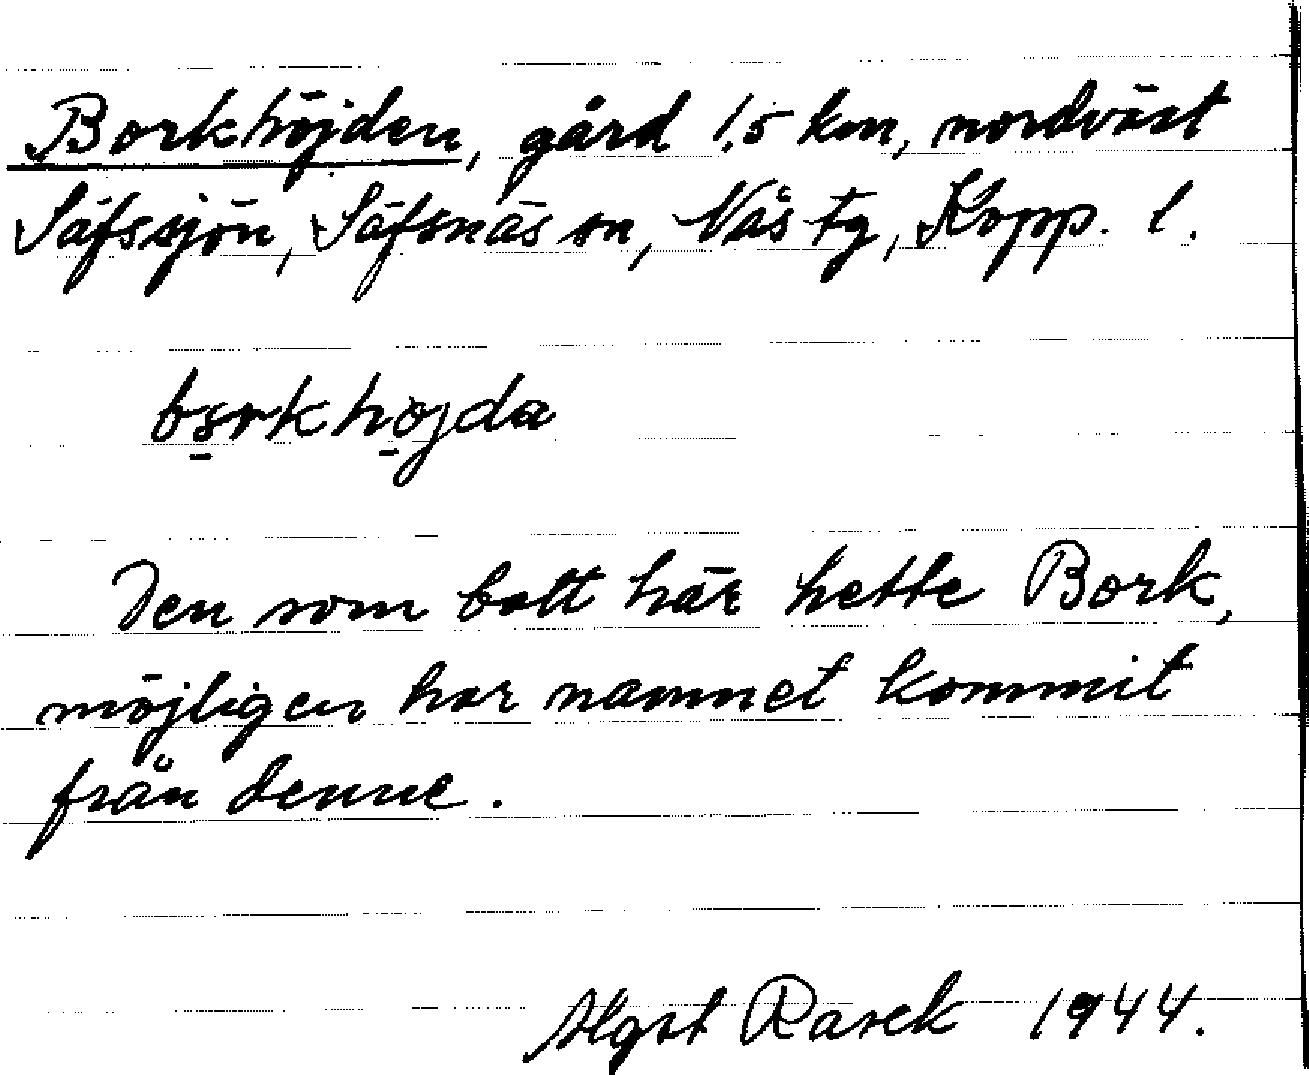 Borkhöjden, gård 1,5 km, nordväst
Säfssjön, Säfsnäs sn, Nås tg, Kopp. l.
bo̱rkhö̱jda
Den som bott här hette Bork,
möjligen har namnet kommit
från denne.
Algot Rasck 1944.